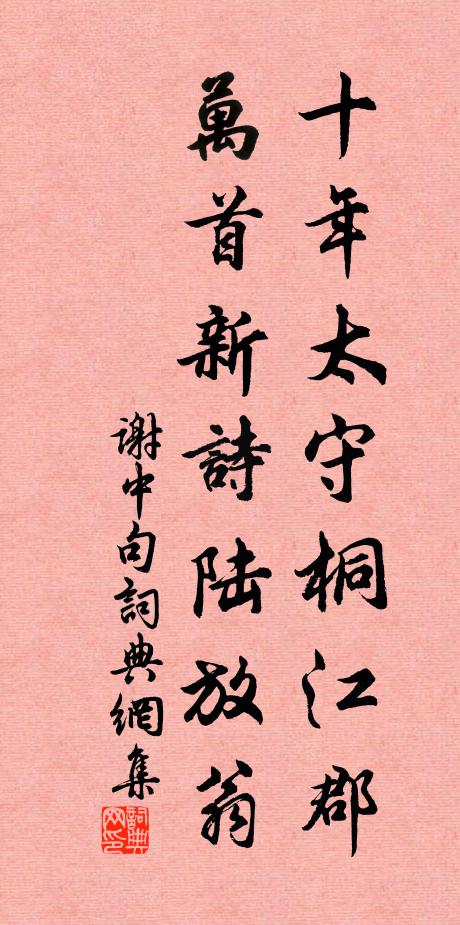 十年太守桐江郡
萬首新詩陸放翁
謝中句詞典網集
詞典
网印